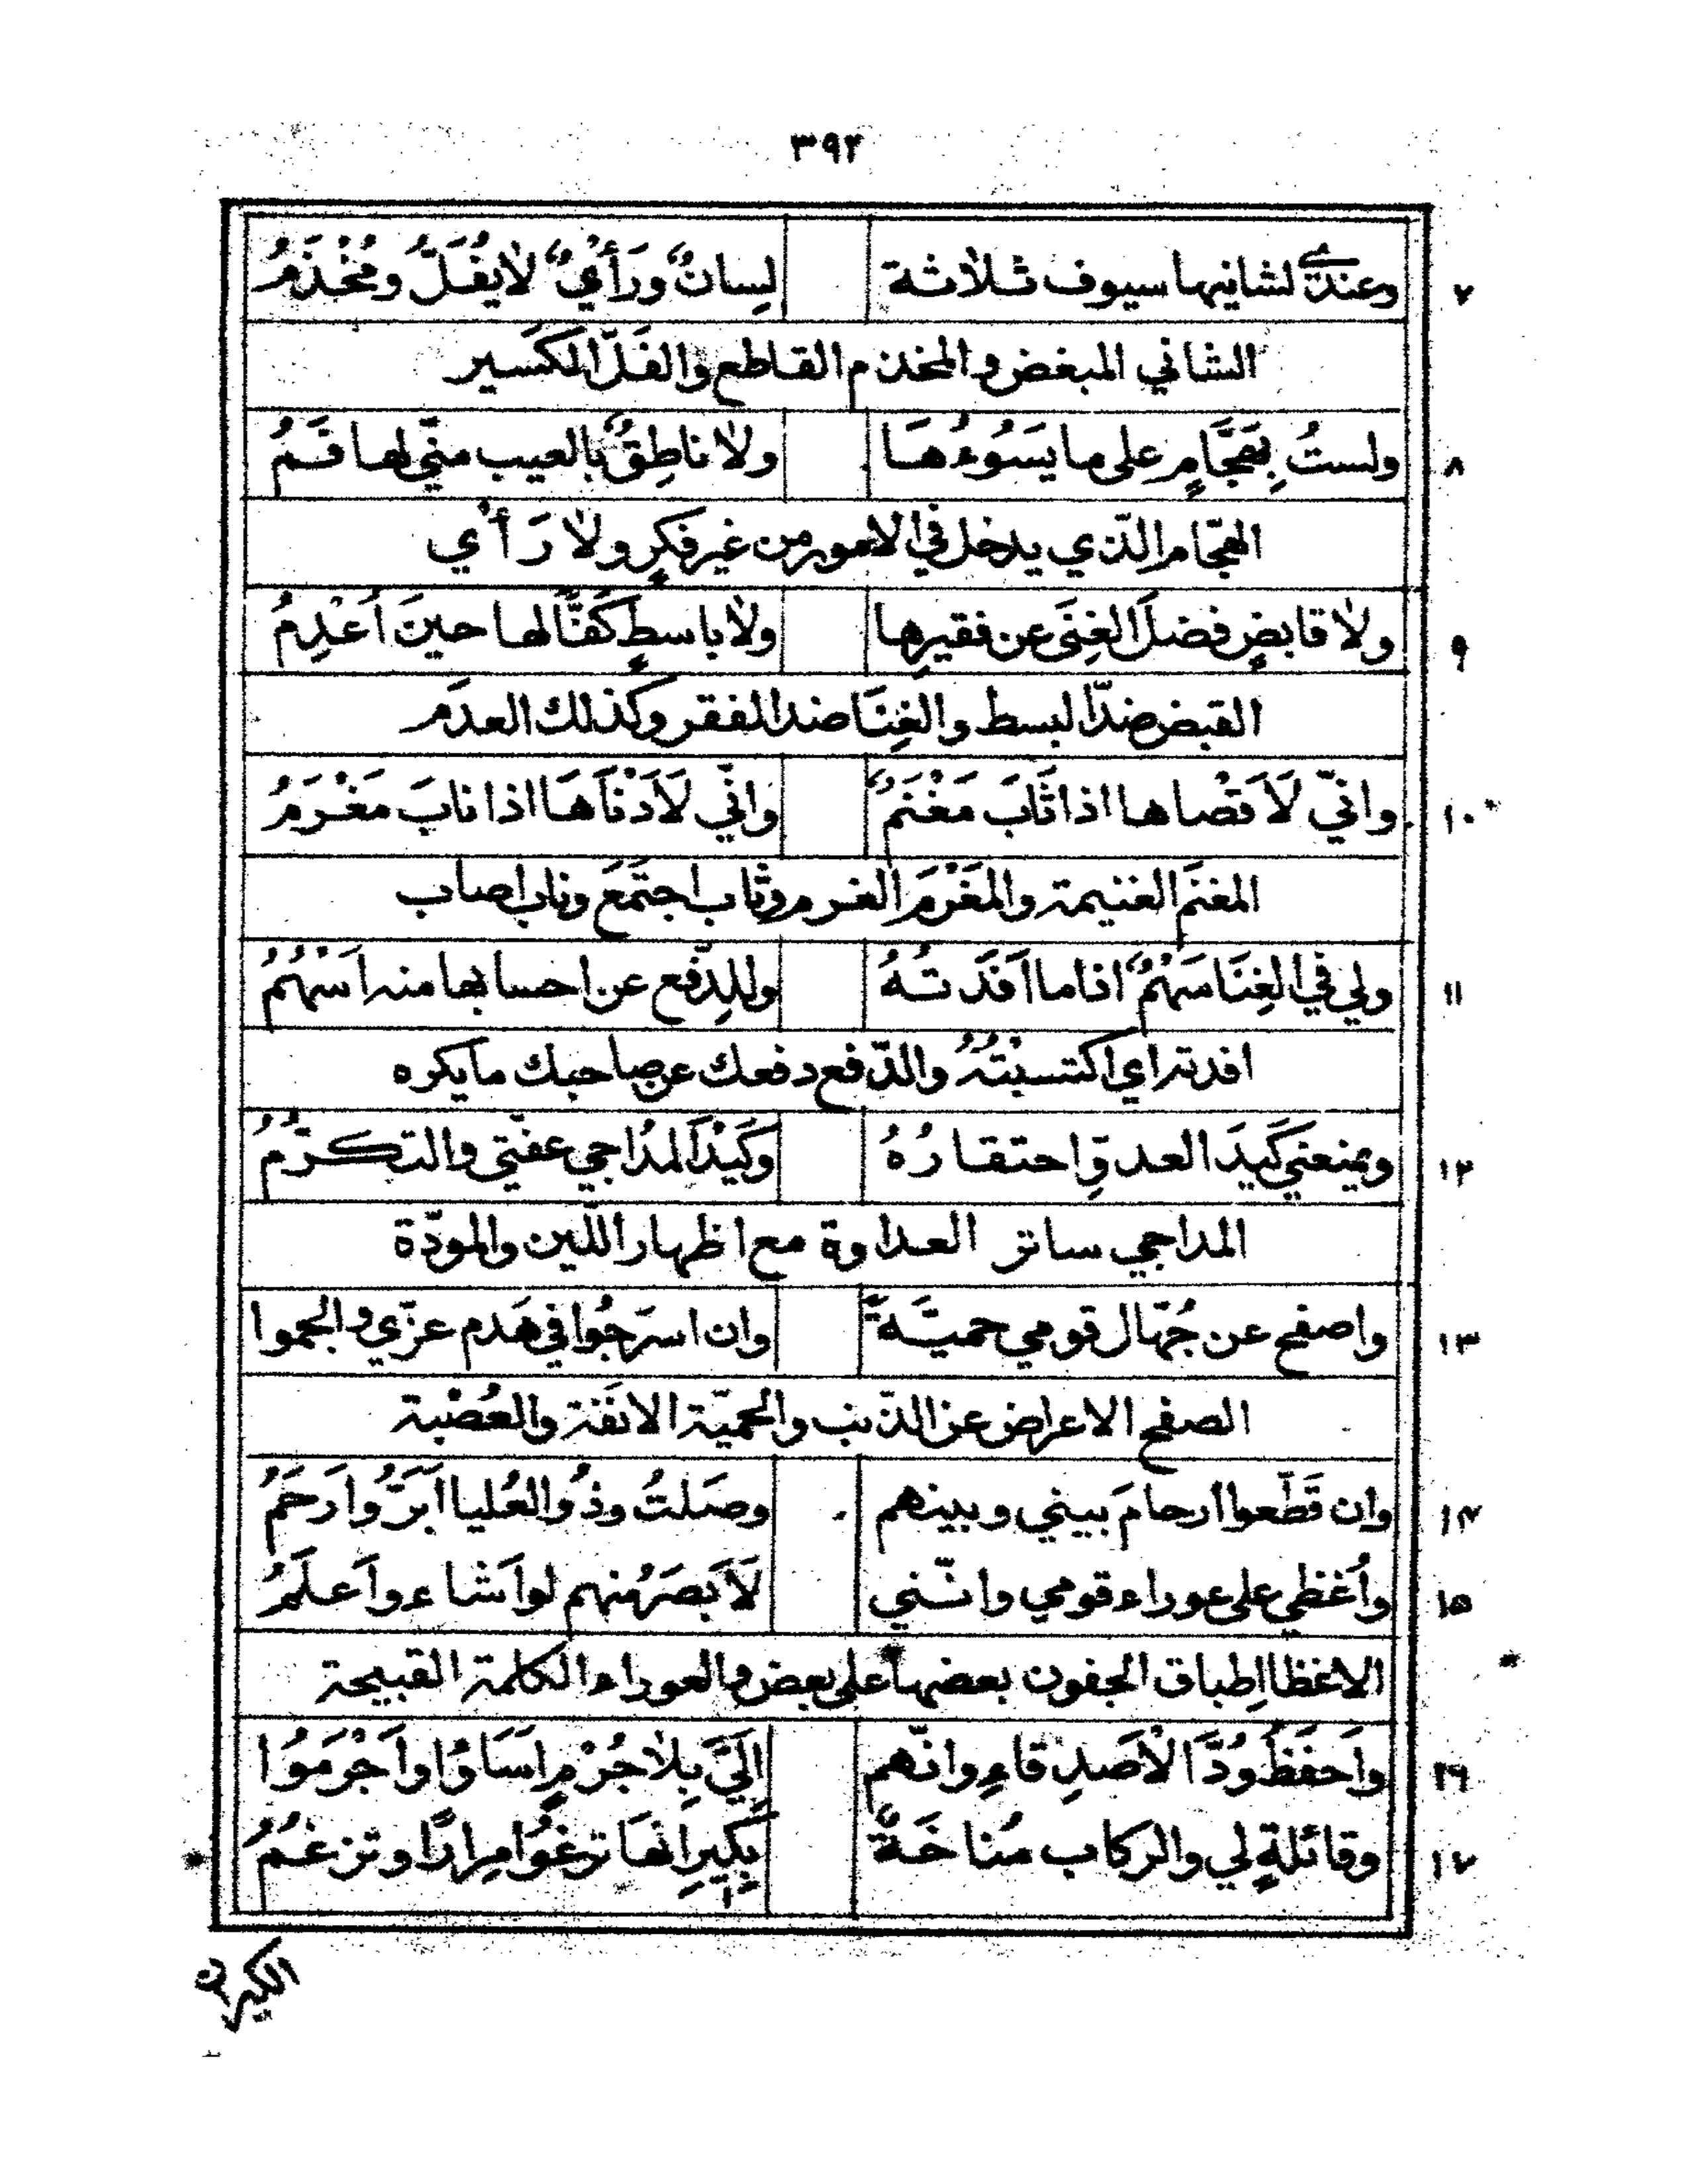 ٣٩٢
٧ وعندي لشانيها سيوف ثلاثة لِسانٌ ورَأْيٌ لا يُفَلُّ ومُخْذَمُ
الشاني المبغض والمخذم القاطع والفَلّ المكسير
٨ ولستُ بِهَجَّامٍ على ما يَسُوءُهَا ولا ناطِقٌ بالعيب منّي لها فَمُ
الهجّام الّذي يدخل في الامور من غير فكرٍ ولا رَأْي
٩ ولا قابضٍ فضلَ الغِنَى عن فقيرِها ولا باسطٍ كَفًّا لها حينَ اُعْدِمُ
القبض ضدّ البسط والغِنَا ضد الفقر وكذلك العدَم
١٠ وانّي لَاَقصْاها اذا ثَابَ مَغْنَمٌ وانّي لَاَدْنَاهَا اذا نابَ مَغْرَمُ
المغنَم الغنيمة والمَغْرَم الغرم وثاب اجتَمَعَ وناب اصاب
١١ ولي في الغِنَا سَهْمٌ اذا ما اَفَدتُهُ وللدِفع عن احسابها منه اَسْهُمُ
افدته اي اكتسبْتُهُ والدّفع دفعك عن صاحبك ما يكره
١٢ ويمنعني كَيدَ العدوِّ احتقارُهُ وكَيْدَ المُداجي عفّتي والتكرّمُ
المداجي ساتر العداوة مع اظهار اللّين والمودّة
١٣ واصفح عن جُهّال قومي حميَّةً وان اسرَجُوا في هَدم عزّي والجموا
الصفح الاعراض عن الذّنب والحميّة الانَفَة والعُصْبة
١٤ وان قَطّعوا ارحامَ بيني وبينهم وصَلتُ وذُو العُليا اَبَرُّ واَرحَمُ
١٥ واُغظي على عوراء قومي وانّني لَاَبصَرُ منهم لو اَشاء واَعلَمُ
الاغظا اِطباق الجفون بعضها على بعض والعوراء الكلمة القبيحة
١٦ واَحفَظُ وُدَّ الْاَصدِقاءِ وانّهم اِلَيَّ بِلا جُرْمٍ اَسَاؤُا واَجْرَمُوا
١٧ وقائلةٍ لي والركاب مُناخَةٌ بِكِيرانها ترغُوا مِرارًا وتزغمُ
الكيران